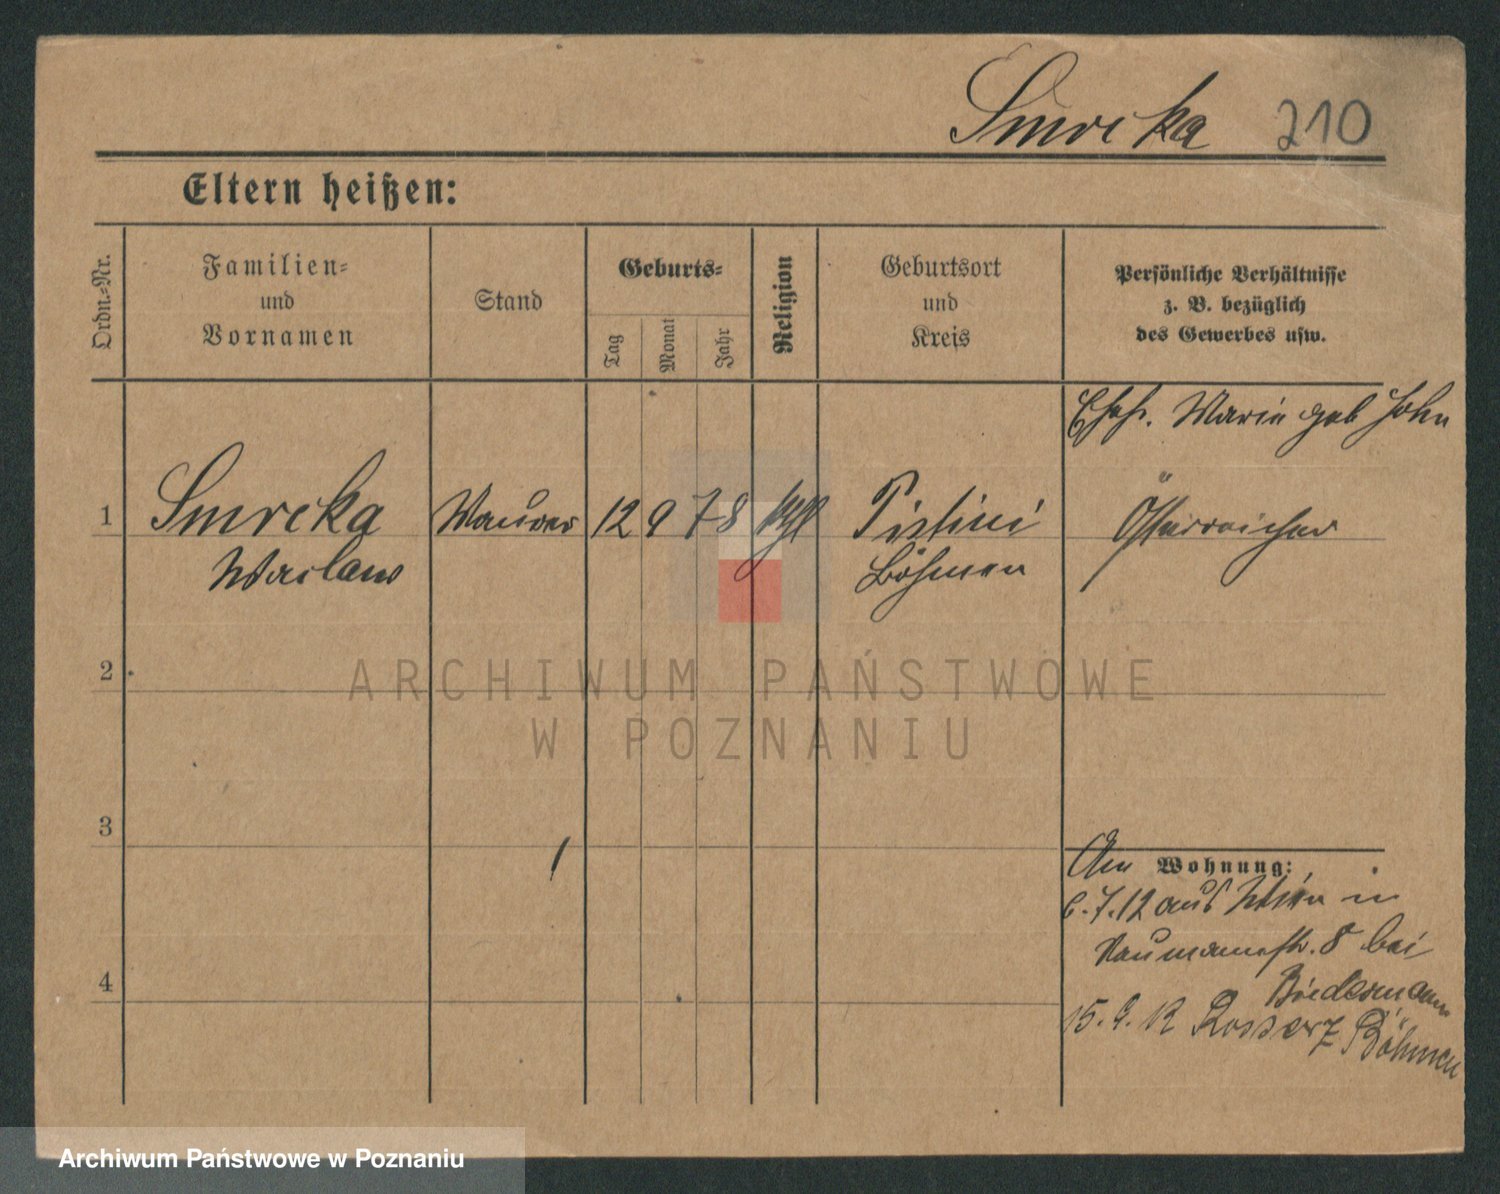 Smrcka 210
Eltern heißen:
Ordn.-Nr.
Familien-
und
Vornamen
Stand
Geburts-
Tag
Monat
Jahr
Religion
Geburtsort
und
Kreis
Persönliche Verhältnisse
z. B. bezüglich
des Gewerbes usw.
Ehefr. Marie geb John
1 Smrcka Maurer 12 9 78 kath Pistini Österreicher
Waclaw Böhmen
2
3
4
Am Wohnung:
6.7.12 aus Wien in
Naumannstr. 8 bei
Biedermann
15.9.12 Böhmen
ARCHIWUM PAŃSTWOWE
W POZNANIU
Archiwum Państwowe w Poznaniu